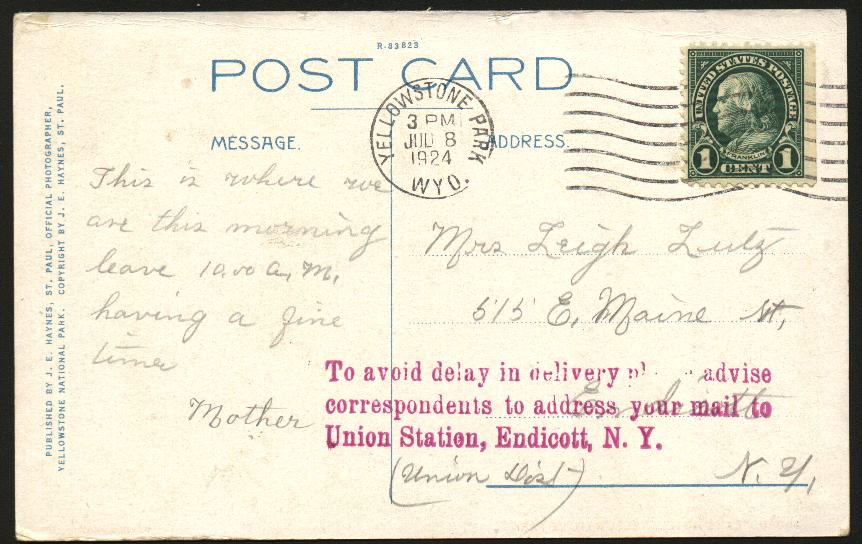 R-83823
POST CARD
MESSAGE.
ADDRESS.
YELLOWSTONE PARK
3 PM
JUL 8
1924
WYO.
UNITED STATES POSTAGE
FRANKLIN
1 CENT 1
This is where we
are this morning
leave 10.00 A, M,
having a fine
time
Mother
Mrs Leigh Lutz
515 E, Maine St,
Endicott
(Union Dist)
N. Y,
To avoid delay in delivery advise
correspondents to address your mail to
Union Station, Endicott, N. Y.
PUBLISHED BY J. E. HAYNES, ST. PAUL, OFFICIAL PHOTOGRAPHER,
YELLOWSTONE NATIONAL PARK. COPYRIGHT BY J. E. HAYNES, ST. PAUL.